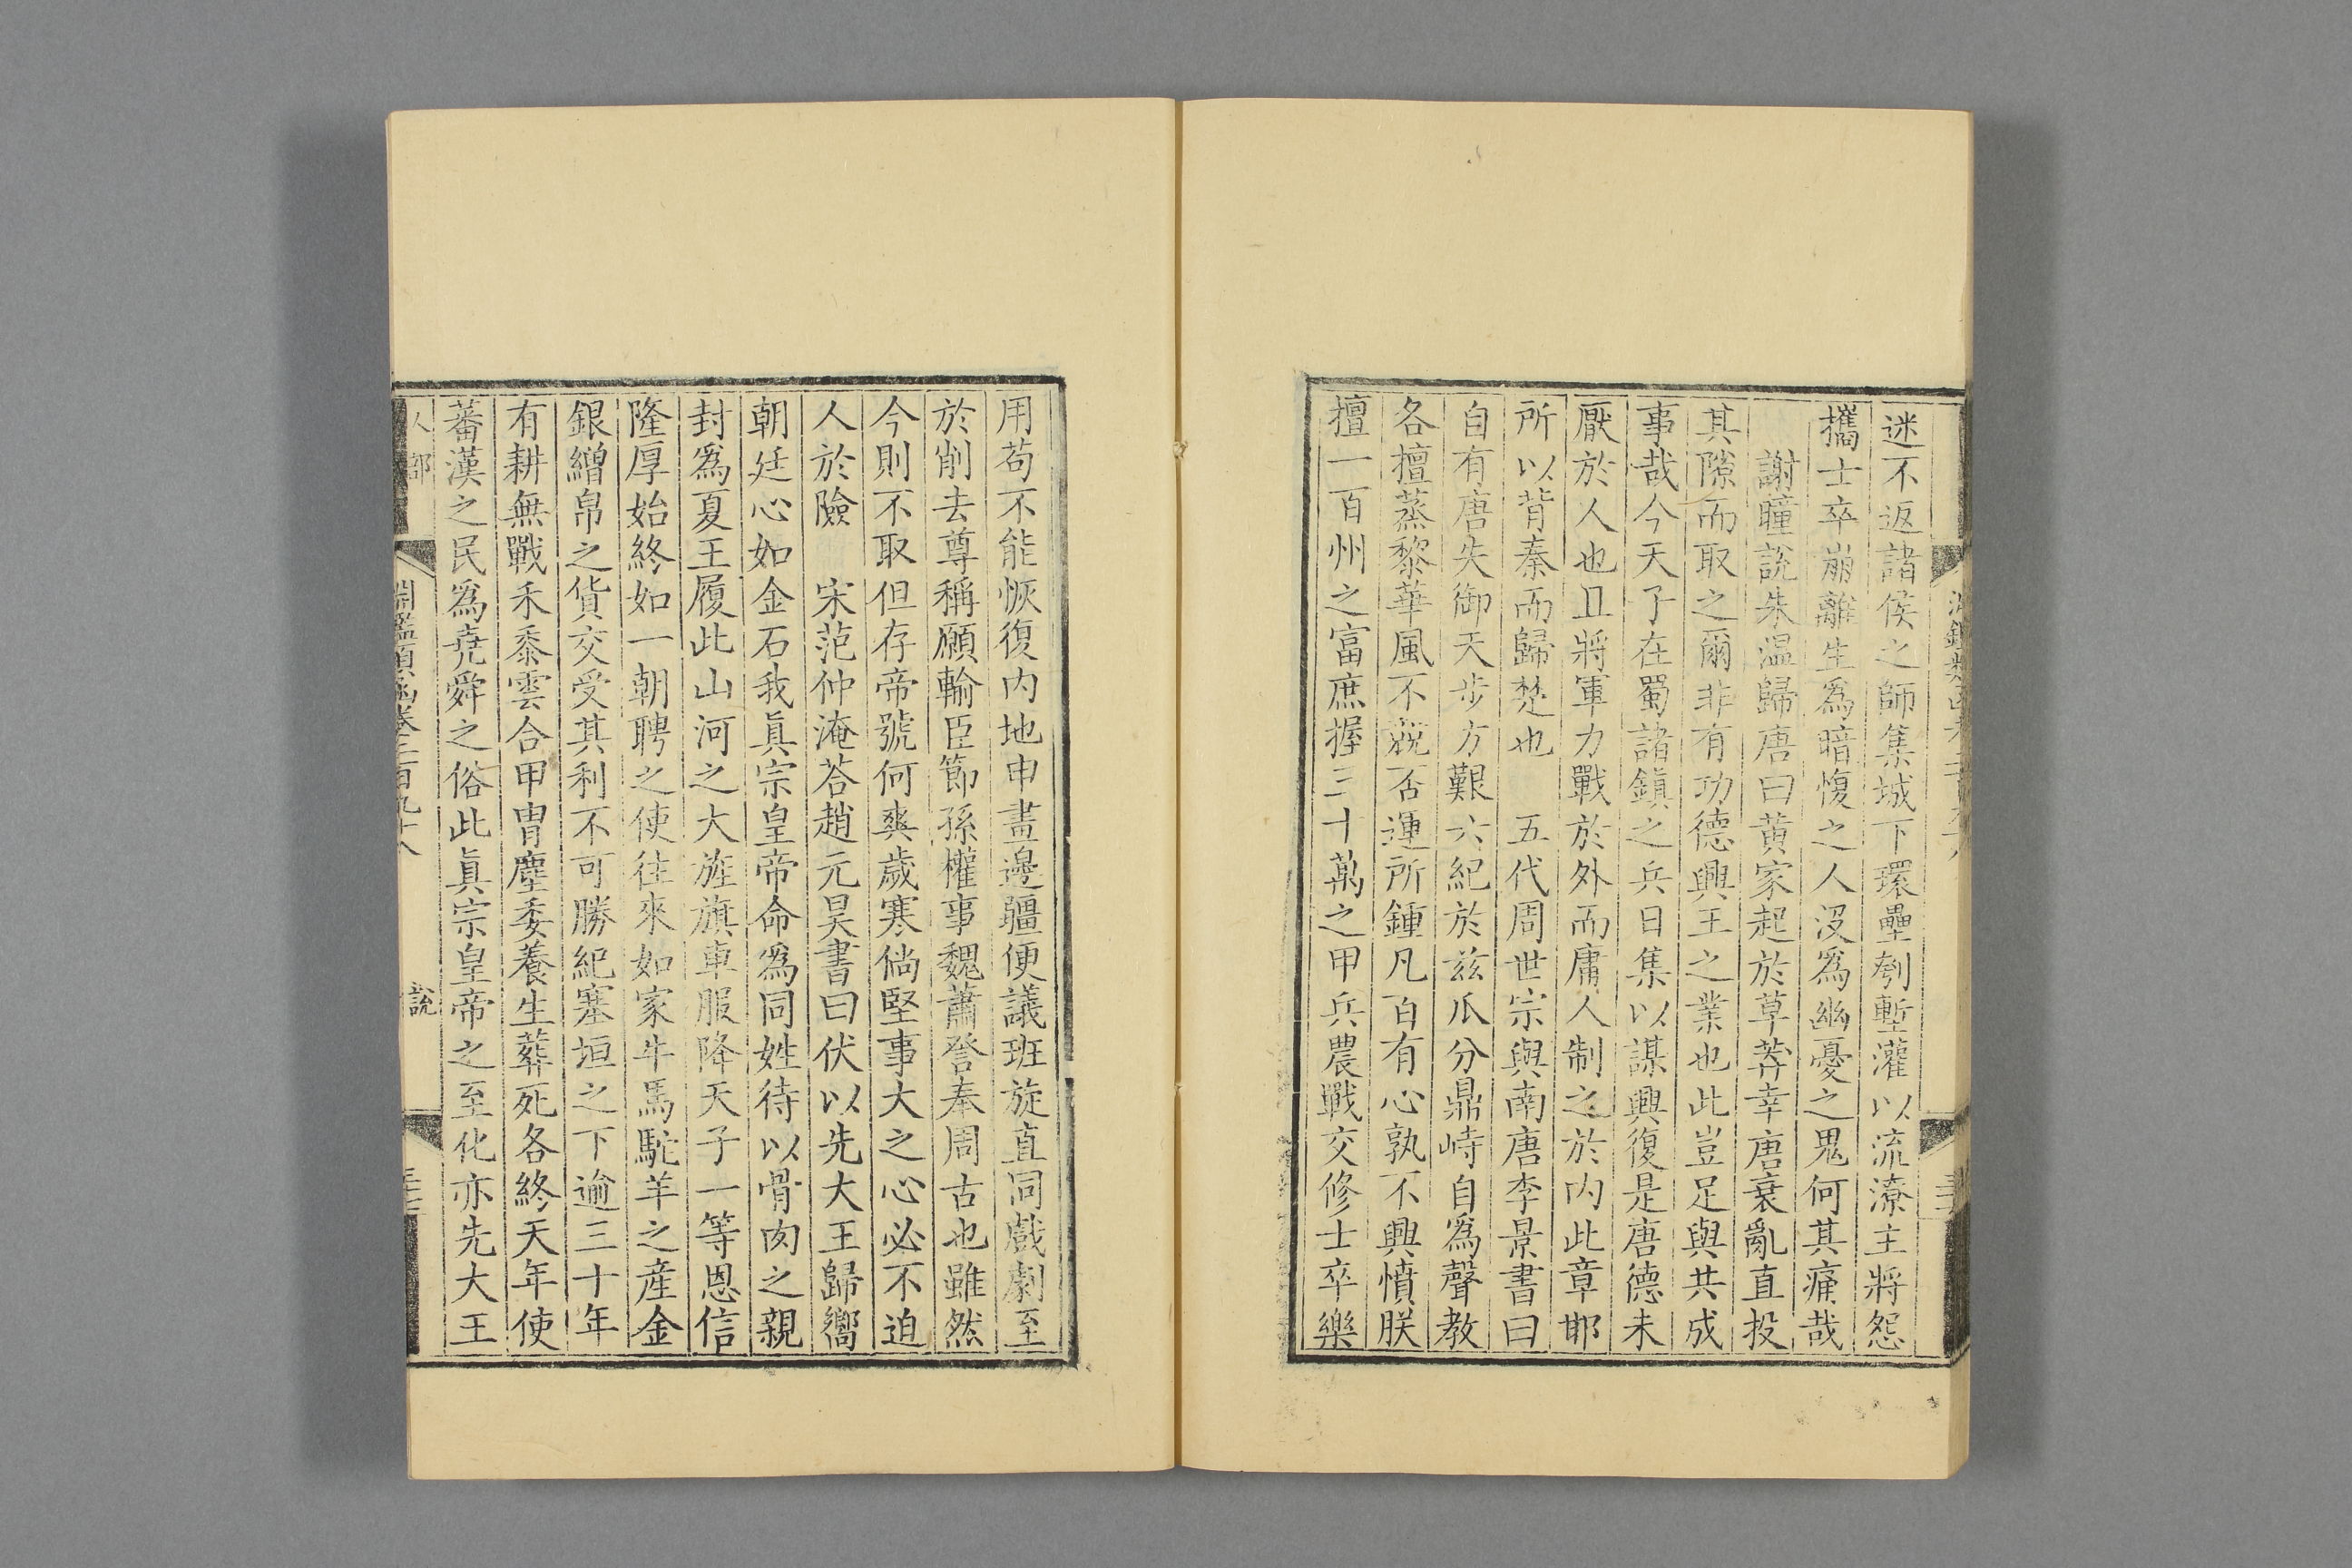 迷不返諸侯之師集城下環壘刳塹灌以流潦主將怨
攜士卒崩離生爲暗愎之人沒爲幽憂之鬼何其痛哉
謝瞳說朱温歸唐曰黄家起於草莽幸唐衰亂直投
其隙而取之爾非有功德興王之業也此豈足與共成
事哉今天子在蜀諸鎮之兵日集以謀興復是唐德未
厭於人也且將軍力戰於外而庸人制之於内此章邯
所以背秦而歸楚也 五代周世宗與南唐李景書曰
自有唐失御天步方艱六紀於兹瓜分鼎峙自爲聲教
各擅蒸黎華風不競否運所鍾凡百有心孰不興憤朕
擅一百州之富庶握三十萬之甲兵農戰交修士卒樂
用苟不能恢復内地申畫邊疆便議班旋直同戲劇至
於削去尊稱願輸臣節孫權事魏蕭詧奉周古也雖然
今則不取但存帝號何爽歲寒倘堅事大之心必不迫
人於險 宋范仲淹荅趙元昊書曰伏以先大王歸嚮
朝廷心如金石我眞宗皇帝命爲同姓待以骨肉之親
封爲夏王履此山河之大旌旗車服降天子一等恩信
隆厚始終如一朝聘之使往來如家牛馬駝羊之産金
銀繒帛之貨交受其利不可勝紀塞垣之下逾三十年
有耕無戰禾黍雲合甲冑塵委養生葬死各終天年使
蕃漢之民爲堯舜之俗此眞宗皇帝之至化亦先大王
人部
淵鑑類函卷二百九十八
說